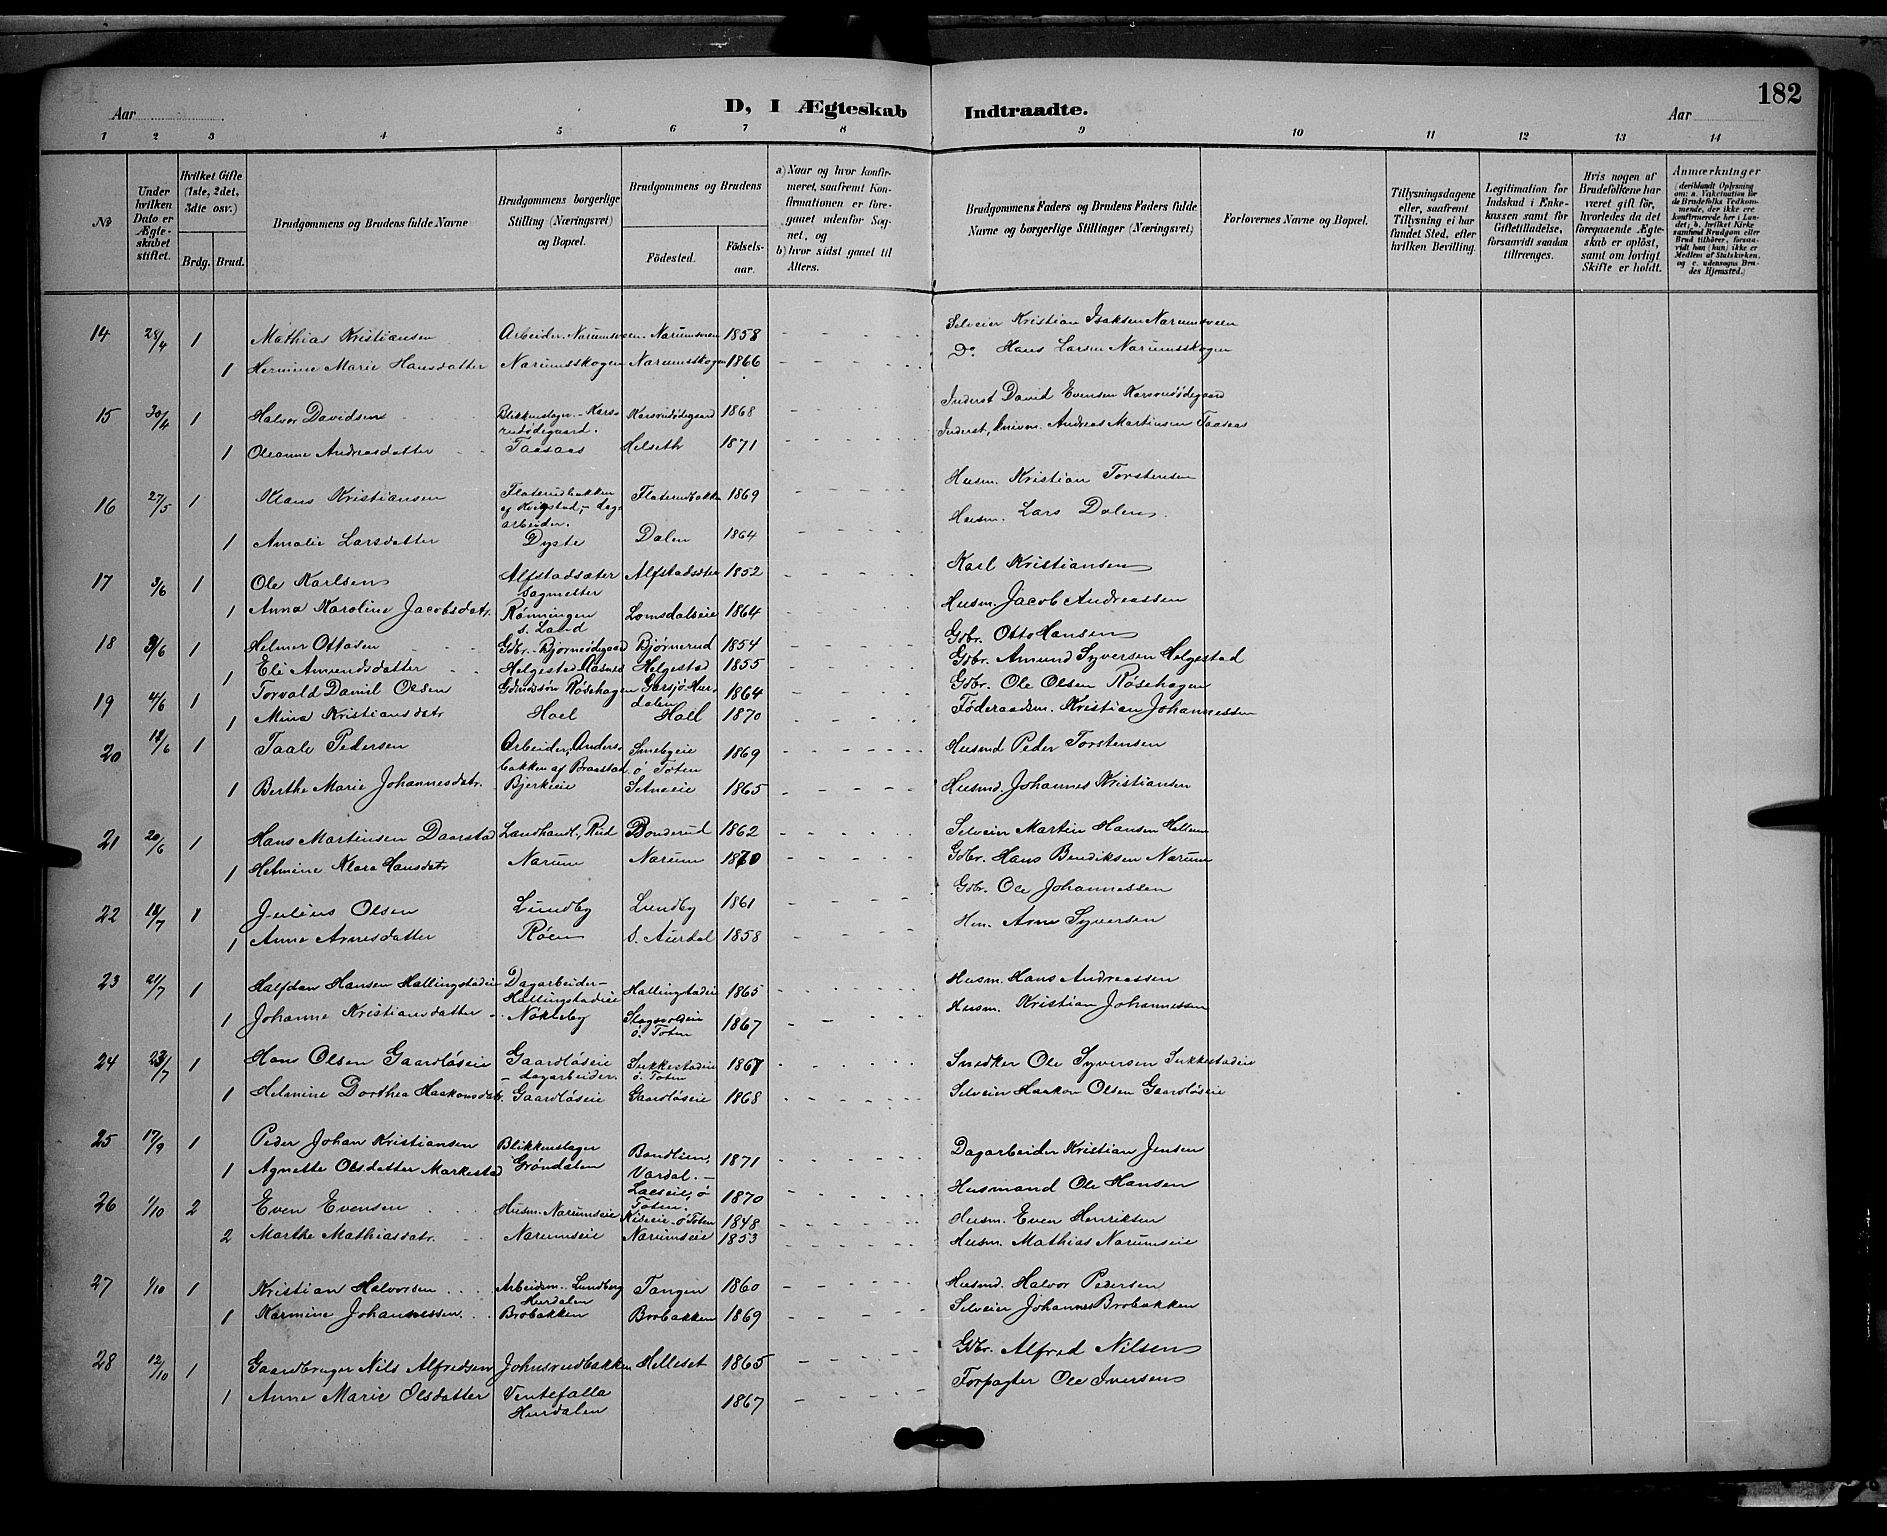 182
Aar
D, I Ægteskab Indtraadte.
Aar
1 2 3 4 5 6 7 8 9 10 11 12 13 14
No
Under hvilken Dato er Ægteskabet stiftet.
Hvilket Gifte (1ste, 2det, 3die osv.)
Brdg. Brud.
Brudgommens og Brudens fulde Navne
Brudgommens borgerlige Stilling (Næringsvei) og Bopel.
Brudgommens og Brudens
Fødested.
Fødselsaar.
a) Naar og hvor konfirmeret, saafremt Konfirmationen er foregaaet udenfor Sognet, og
b) hvor sidst gaaet til Alters.
Brudgommens Faders og Brudens Faders fulde Navne og borgerlige Stillinger (Næringsvei)
Forlovernes Navne og Bopel.
Tillysningsdagene eller, saafremt Tillysning ei har fundet Sted, efter hvilken Bevilling.
Legitimation for Indskud i Enkekassen samt for Giftetilladelse, forsaavidt saadan tiltrænges.
Hvis nogen af Brudefolkene har været gift før, hvorledes da det foregaaende Ægteskab er opløst, samt om lovligt Skifte er holdt.
Anmærkninger
(deriblandt Oplysning om: a. Vakcination for de Brudefolks Vedkommende, der ikke ere konfirmerede her i Landet; b. hvilket Kirkesamfund Brudgom eller Brud tilhører, forsaavidt han (hun) ikke er Medlem af Statskirken, og c. udensogns Brudes Hjemsted.)
14 28/4 1 Mathias Kristiansen Arbeider. Narumsveen Narumsveen 1858 Selveier Kristian Isaksen Narumsveen
1 Hermine Marie Hansdatter Narumsskogen Narumsskogen 1866 Do Hans Larsen Narumsskogen
15 30/4 1 Halvor Davidsen Blikkenslager - Karsrudødegaard. Karsrudødegaard 1868 Inderst David Evensen Karsrudødegaard
1 Oleanne Andreasdatter Taasaas Helseth 1871 Inderst, Andreas Martinsen Taasaas
16 27/5 1 Klaus Kristiansen Flaterudbakken af Kvigstad, - dagarbeider. Flaterudbakken 1869 Husm. Kristian Torstensen
1 Amalie Larsdatter Dyste Dalen 1864 Husm. Lars Dalen
17 3/6 1 Ole Karlsen Alfstadsæter Sagmester Alfstadsæter 1852 Karl Kristiansen
1 Anna Karoline Jacobsdatr. Rønningen s. Land Lomsdalseie 1864 Husm. Jacob Andreassen
18 3/6 1 Helmer Ottosen Gdbr. Bjørnerudødegaard Bjørnerud 1854 Gdbr. Otto Hansen
1 Eli Amundsdatter Helgestad Helgestad 1855 Gdbr. Amund Syversen Helgestad
19 4/6 1 Torvald Daniel Olsen Gdmdssøn Røsehagen Garsjø Hurdalen 1864 Gdbr. Ole Olsen Røsehagen
1 Mina Kristiansdatr Hoel Hoel 1870 Føderaadsm. Kristian Johannessen
20 12/6 1 Taale Pedersen Arbeider, Andersbakken af Braastad Smebyeie ø Toten 1869 Husmd Peder Torstensen
1 Berthe Marie Johannesdatr. Bjerkeeie Setneeie 1865 Husmd. Johannes Kristiansen
21 20/6 1 Hans Martinsen Daarstad Landhandl., Rud Bonderud 1862 Selveier Martin Hansen
1 Helmine Klara Hansdatr Narum Narum 1870 Gdbr. Hans Bendiksen Narum
22 12/7 1 Julius Olsen Lundby Lundby 1861 Gdbr. Ole Johannessen
1 Anne Arnesdatter Røen S. Aurdal 1858 Arne Syversen
23 21/7 1 Halfdan Hansen Hallingstadeie Dagarbeider - Hallingstadeie Hallingstadeie 1865 Husm. Hans Andreassen
1 Johanne Kristiansdatter Nøkleby ø. Toten 1867 Husm. Kristian Johannessen
24 23/7 1 Hans Olsen Gaardløseie Gaardløseie - dagarbeider. Sukkestadeie ø. Toten 1867 Snedker Ole Syversen Sukkestadeie
1 Helmine Dorthea Haakonsdatr. Gaardløseie Gaardløseie 1868 Selveier Haakon Olsen Gaardløseie
25 17/9 1 Peder Johan Kristiansen Blikkenslager Bondlien, Vardal. - 1871 Dagarbeider Kristian Jensen
1 Agnette Olsdatter Markestad Grøndalen ø Toten. 1870 Husmand Ole Hansen
26 1/10 2 Even Evensen Husm. Narumseie Kiseie - ø Toten 1848 Husm. Even Henriksen
2 Marthe Mathiasdatr. Narumseie Narumseie 1853 Husm. Mathias Narumseie
27 1/10 1 Kristian Halvorsen Arbeidsm. Lundberg Hurdalen Tangen 1860 Husmd. Halvor Pedersen
1 Karmine Johannessen Brobakken Brobakken 1869 Selveier Johannes Brobakken
28 12/10 1 Gaardbruger Nils Alfredsen Johnsrudbakken Helleset 1865 Gdbr. Alfred Nilsen
1 Anne Marie Olsdatter Ventefalla Hurdalen 1867 Forpagter Ole Iversen